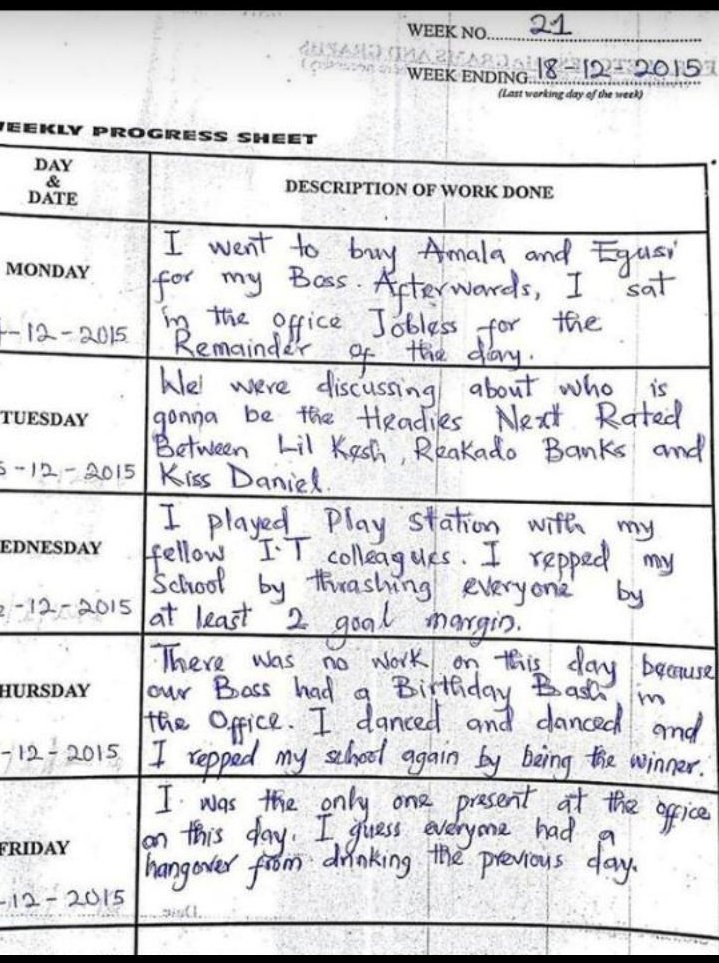 WEEK NO. 21
WEEK ENDING 18-12-2015
(Last working day of the week)
WEEKLY PROGRESS SHEET
DAY
&
DATE
DESCRIPTION OF WORK DONE
MONDAY
-12-2015
I went to buy Amala and Egusi
for my Boss. Afterwards, I sat
in the office Jobless for the
Remainder of the day.
TUESDAY
-12-2015
We were discussing about who is
gonna be the Headies Next Rated
Between Lil Kesh, Reakado Banks and
Kiss Daniel.
EDNESDAY
-12-2015
I played Play station with my
fellow I.T colleagues. I repped my
School by thrashing everyone by
at least 2 goal margin.
HURSDAY
-12-2015
There was no work on this day because
our Boss had a Birthday Bash in
the Office. I danced and danced and
I repped my school again by being the winner.
FRIDAY
-12-2015
I was the only one present at the office
on this day. I guess everyone had a
hangover from drinking the previous day.